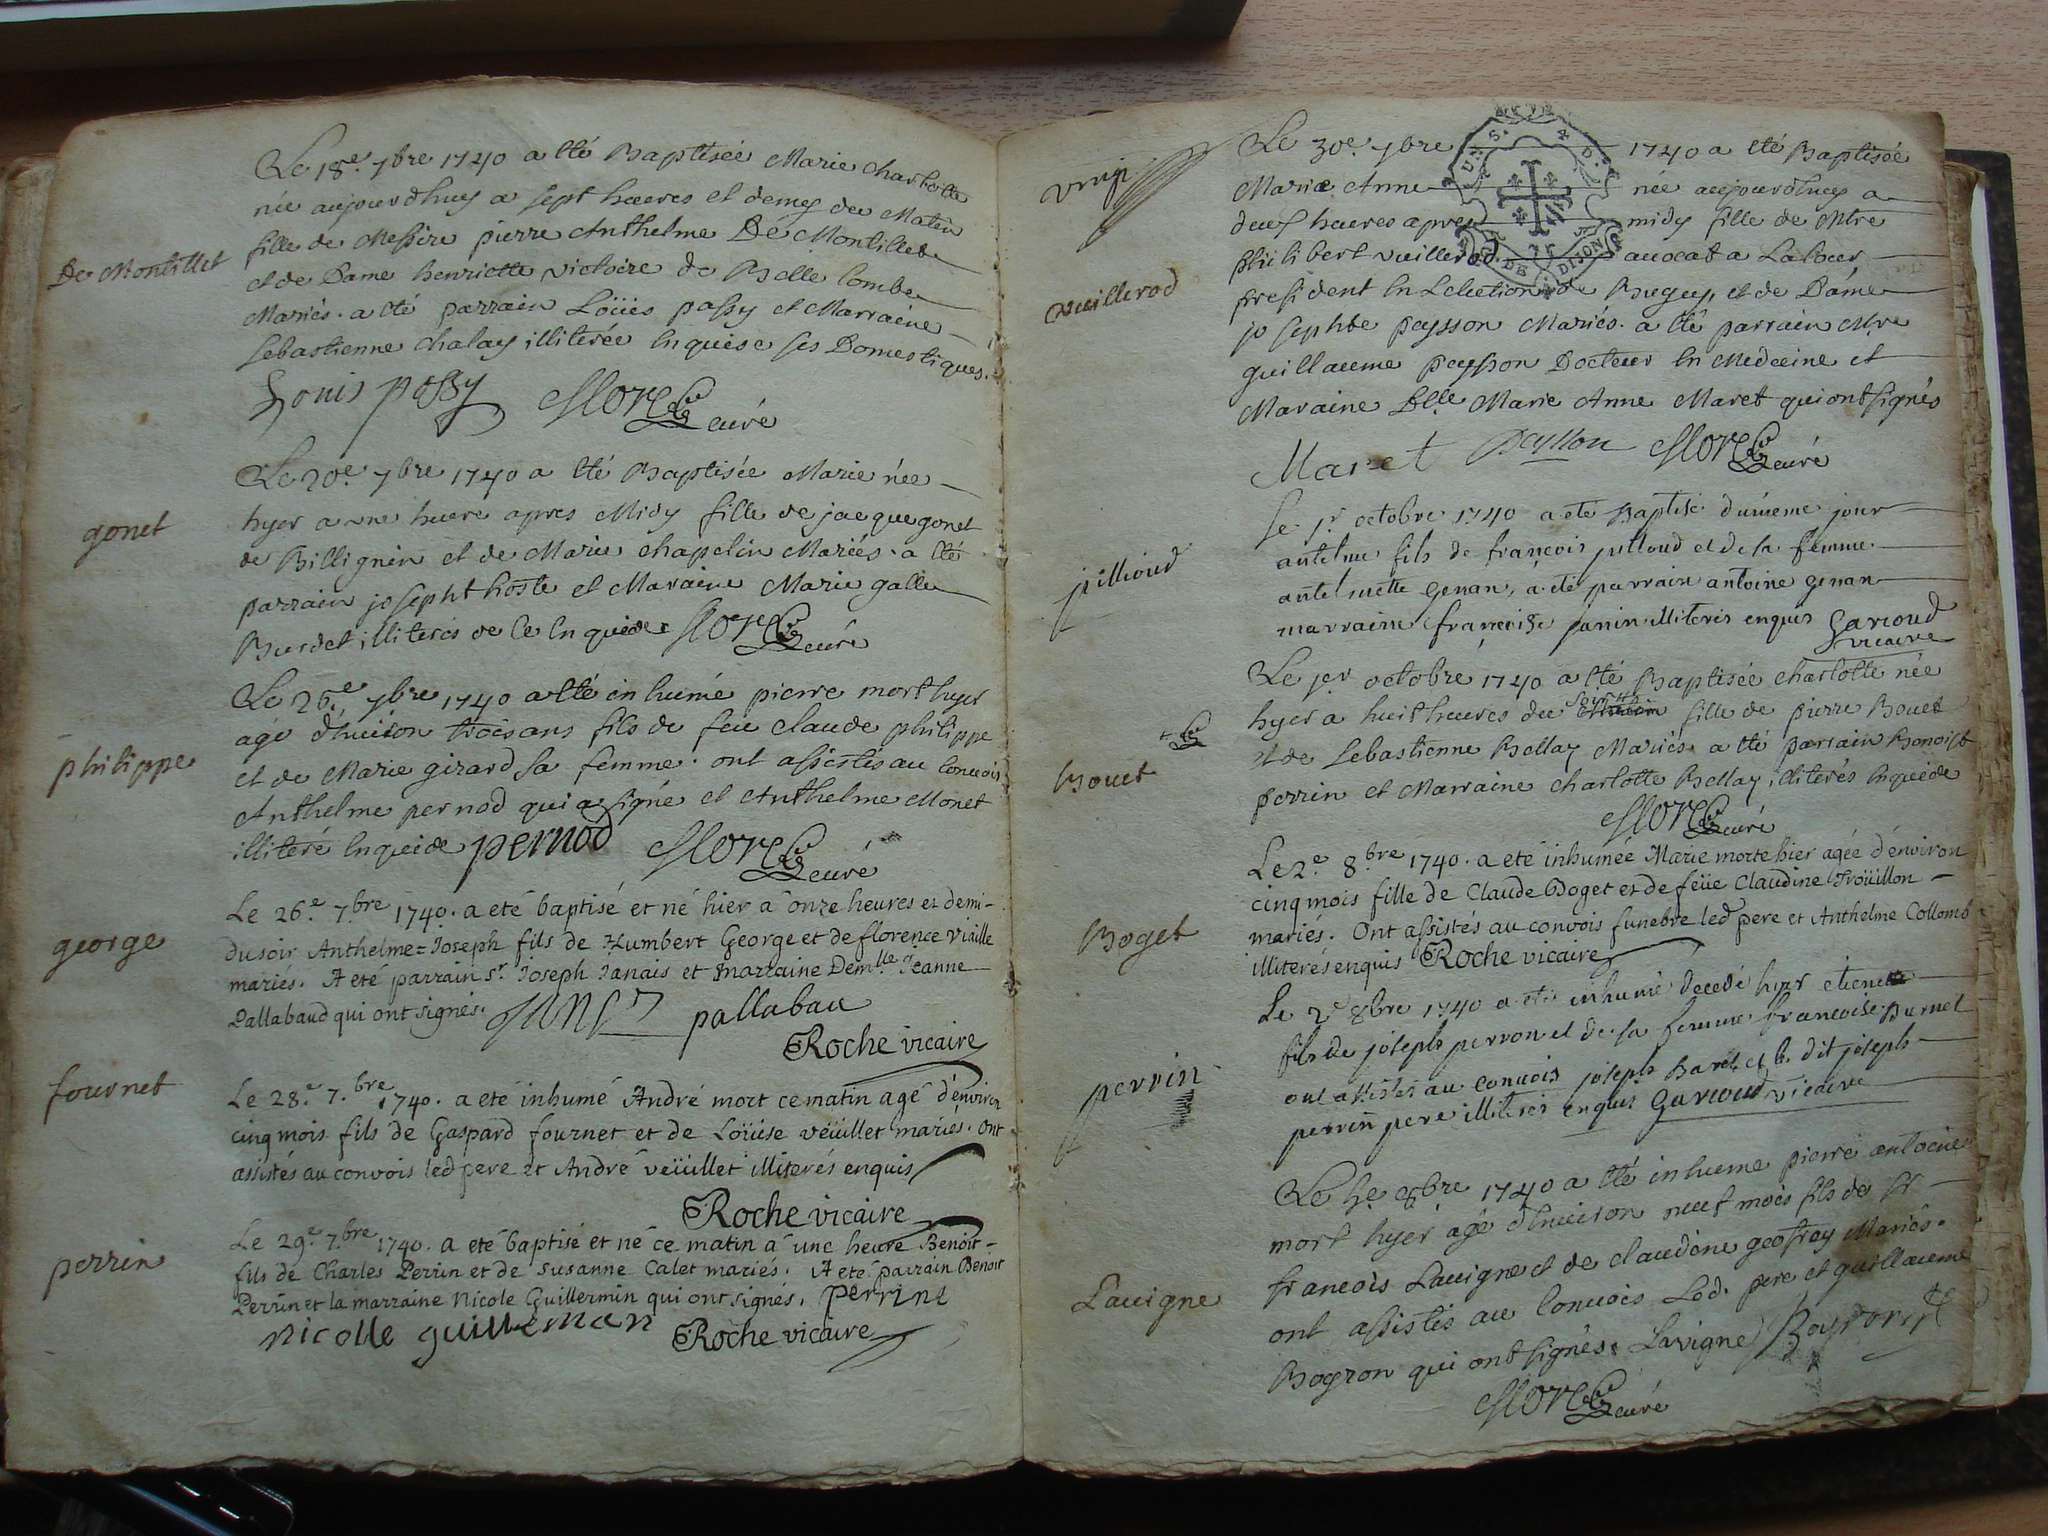 De Montillet
Le 18e. 7bre 1740 a êté Baptisée Marie Charlotte
née aujourdhuy a sept heures et demy du Matin
fille de Messire pierre Anthelme De Montillet
et de Dame henriette victoire de Belle Combe
Mariés. a êté parrain Loüis passy et Marraine
Sebastienne Chalay illiterée Enquise ses Domestiques.
Louis passy curé
gonet
Le 20e. 7bre 1740 a êté Baptisée Marie née
hyer a une heure apres Midy fille de jacque gonet
de Billignin et de Marie chapelin Mariés. a êté
parrain joseph hoste et Maraine Marie galle
Burdet illiterés de ce Enquis curé
philippe
Le 26e. 7bre 1740 a êté inhumé pierre mort hyer
agé d'huiron trois ans fils de feu Claude philippe
et de Marie girard sa femme. ont assistés au Convois
Anthelme pernod qui a signé et Anthelme Monet
illiteré Enquis pernod curé
george
Le 26.e 7.bre 1740. a eté baptisé et né hier à onze heures et demi
du soir Anthelme=Joseph fils de Humbert George et de florence Viaille
mariés. A eté parrain Sr. Joseph Janais et marraine Demlle Jeanne
Pallabaud qui ont signés. pallabau
Roche vicaire
fournet
Le 28.e 7.bre 1740. a eté inhumé André mort ce matin agé d'environ
cinq mois fils de Gaspard fournet et de Loüise veüillet mariés. Ont
assistés au convois led pere et André veüillet illiterés enquis
Roche vicaire
perrin
Le 29.e 7.bre 1740. a eté baptisé et né ce matin à une heure Benoit
fils de Charles Perrin et de Susanne Calet mariés. A eté parrain Benoit
Perrin et la marraine Nicole Guillermin qui ont signés. Perrine
Nicolle guilleman Roche vicaire
vuillerod
Le 30e. 7bre 1740 a eté Baptisée
Marie Anne née aujourdhuy a
deux heures apres midy fille de Mtre
philibert vuillerod avocat a La Cour
president En Lelection de Bugey, et de Dame
josephte peysson Mariés. a êté parrain Mre
guillaume peysson Docteur En Medecine et
Maraine Dlle Marie Anne Maret qui ont signés
Maret peysson curé
DE DIJON
pillioud
Le 1r octobre 1740 a eté Baptisé du meme jour
antelme fils de francois pilloud et de sa femme
antelmette genan, a eté parrain antoine genan
marraine francoise parrin illiterés enquis Garioud
vicaire
Bouet
Le 1er octobre 1740 a êté Baptisée Charlotte née
hyer a huit heures du soir fille de pierre Bouet
et de Sebastienne Bellay Mariés a êté parrain Benoist
perrin et Marraine Charlotte Bellay illiterés Enquis
curé
Boget
Le 2.e 8.bre 1740. a eté inhumée Marie morte hier agée d'environ
cinq mois fille de Claude Boget et de feüe Claudine Troüillon
mariés. Ont assistés au convois funebre led pere et Anthelme Collomb
illiterés enquis Roche vicaire
perrin
Le 2e 8bre 1740 a eté inhumé decedé hyer etiene
fils de joseph perron et de sa femme francoise Burnet
ont assisté au convois joseph Baret et le dit joseph
perrin pere illiterés enquis Garioud vicaire
Lavigne
Le 8bre 1740 a êté inhume pierre antoine
mort hyer agé d'huiron neuf mois fils de Sr
francois Lavigne et de claudine geofray Mariés.
ont assistés au Convois Led. pere et guillaume
Boyron qui ont signés. Lavigne Boyron
curé